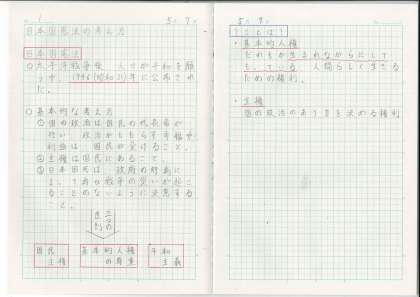 5. 7.
日本国憲法の考え方
日本国憲法
◎太平洋戦争後 人々が平和を願
い、1946(昭和21)年に公布され
た。
◎基本的な考え方
①国の政治は国民の代表者が
行い 政治がもたらす幸福や
利益は 国民が受けること。
②主権は国民にあること。
③日本国民は 政府の行動に
よって再び戦争の災いが起こ
ることのないように決意する
こと。
三つの
原則
国民
主権
基本的人権
の尊重
平和
主義
5. 7.
ことば
・基本的人権
だれもが生まれながらにして
もっている 人間らしく生きる
ための権利。
・主権
国の政治のあり方を決める権利